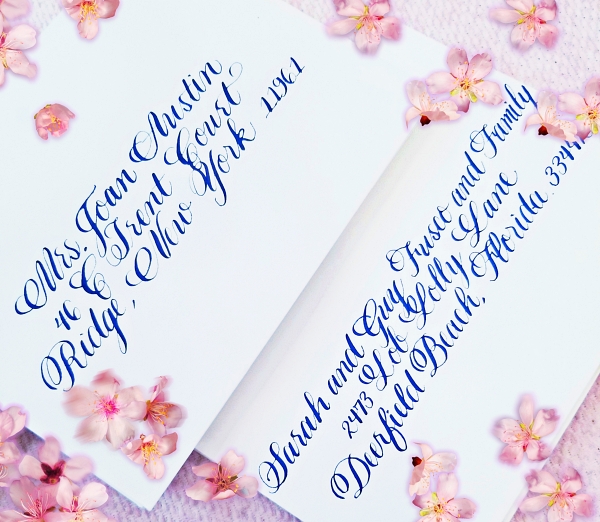 Mrs. Joan Austin
46 C Trent Court
Ridge, New York 11961
Sarah and Guy Fusco and Family
2473 Lob Lolly Lane
Deerfield Beach, Florida